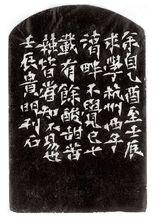 余自乙酉至壬辰
求學杭州西子
湖畔不覺已七
載有餘酸甜苦
辣皆知不易也
壬辰貴明刻石